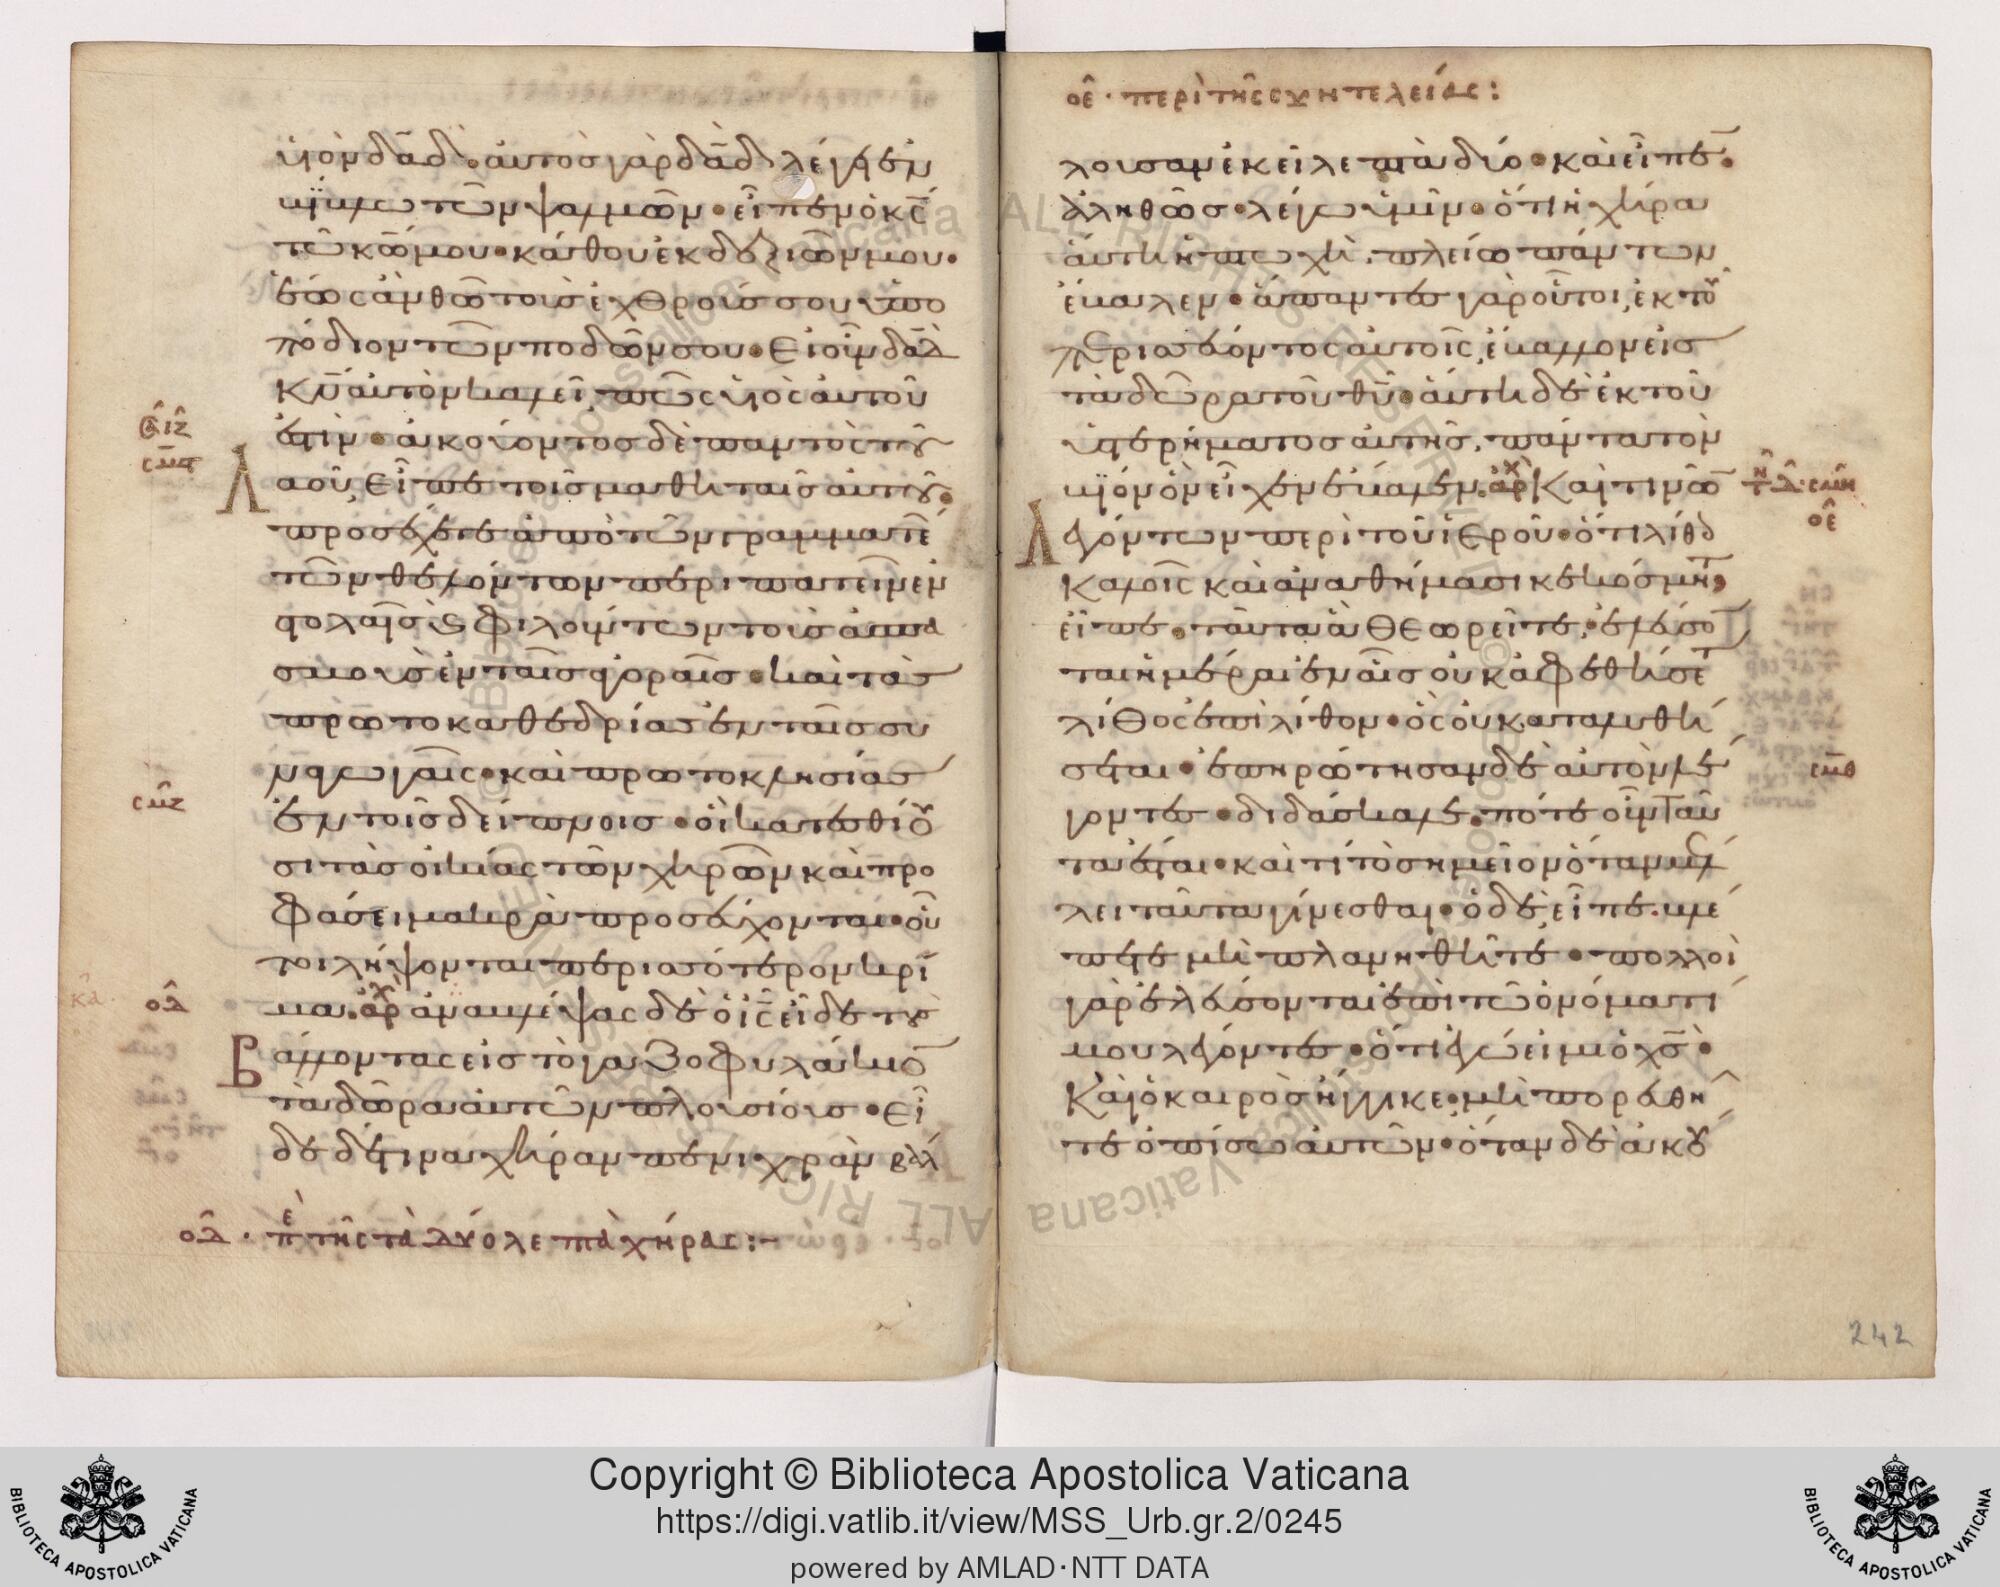 υἱὸν δᾱδ· αὐτὸς γὰρ δᾱδ λέγει ἐν
βίβλω τῶν ψαλμῶν· εἶπεν ὁ κς
τῶ κῶ μου· κάθου ἐκ δεξιῶν μου·
ἕως ἂν θῶ τοὺς ἐχθρούς σου ὑπο
πόδιον τῶν ποδῶν σου· εἰ οὖν δᾱδ
κν αὐτὸν καλεῖ, πῶς υἱὸς αὐτοῦ
ἐστιν· ἀκούοντος δὲ παντὸς τοῦ
λαοῦ, εἶπε τοῖς μαθηταῖς αὐτοῦ·
προσέχετε ἀπὸ τῶν γραμματέ
τῶν θελόντων περιπατεῖν ἐν
στολαῖς καὶ φιλούντων τοὺς ἀσπα
σμοὺς ἐν ταῖς ἀγοραῖς· καὶ τὰς
πρωτοκαθεδρίας ἐν ταῖς συ
ναγωγαῖς· καὶ πρωτοκλησίας
ἐν τοῖς δείπνοις· οἳ κατεσθίου
σι τὰς οἰκίας τῶν χηρῶν καὶ προ
φάσει μακρὰ προσεύχονται· οὗ
τοι λήψονται περισσότερον κρί
μα. ἀρχ ἀναβλέψας δὲ ὁ ις εἶδε τοὺ
βάλλοντας εἰς τὸ γαζοφυλάκιο
τὰ δῶρα αὐτῶν πλουσίους· εἶ
δε δέ τινα χήραν πενιχρὰν βάλ
οδ· πε τῆς τὰ δύο λεπτὰ χήρας:-
οε· περὶ τῆς συντελείας:
λουσαν ἐκεῖ λεπτὰ δύο· καὶ εἶπε·
ἀληθῶς λέγω ὑμῖν· ὅτι ἡ χήρα
αὕτη ἡ πτωχὴ, πλείω πάντων
ἔβαλεν· ἅπαντες γὰρ οὗτοι, ἐκ τοῦ
περισσεύοντος αὐτοῖς, ἔβαλλον εἰς
τὰ δῶρα τοῦ θυ· αὕτη δὲ ἐκ τοῦ
ὑστερήματος αὐτῆς, πάντα τὸν
βίον ὃν εἶχεν ἔβαλεν. ἀρχ Καί τινω
λεγόντων περὶ τοῦ ἱεροῦ· ὅτι λίθοι
καλοῖς καὶ ἀναθήμασι κεκόσμητ·
εἶπε· ταῦτα ἃ θεωρεῖτε, ἐλεύσο
ται ἡμέραι ἐν αἷς οὐκ ἀφεθήσετ
λίθος ἐπὶ λίθον· ὃς οὐ καταλυθή
σεται· ἐπηρώτησαν δὲ αὐτὸν λέ
γοντες· διδάσκαλε, πότε οὖν ταῦ
τα ἔσται· καὶ τί τὸ σημεῖον ὅταν μέλ
λει ταῦτα γίνεσθαι· ὁ δὲ, εἶπε. βλέ
πετε μὴ πλανηθῆτε· πολλοὶ
γὰρ ἐλεύσονται ἐπὶ τῶ ὀνόματί
μου λέγοντες· ὅτι ἐγώ εἰμι ὁ χς·
Καὶ ὁ καιρὸς ἤγγικε· μὴ πορευθῆ
τε ὀπίσω αὐτῶν· ὅταν δὲ ἀκού
242
Copyright © Biblioteca Apostolica Vaticana
https://digi.vatlib.it/view/MSS_Urb.gr.2/0245
powered by AMLAD·NTT DATA
BIBLIOTECA APOSTOLICA VATICANA
BIBLIOTECA APOSTOLICA VATICANA